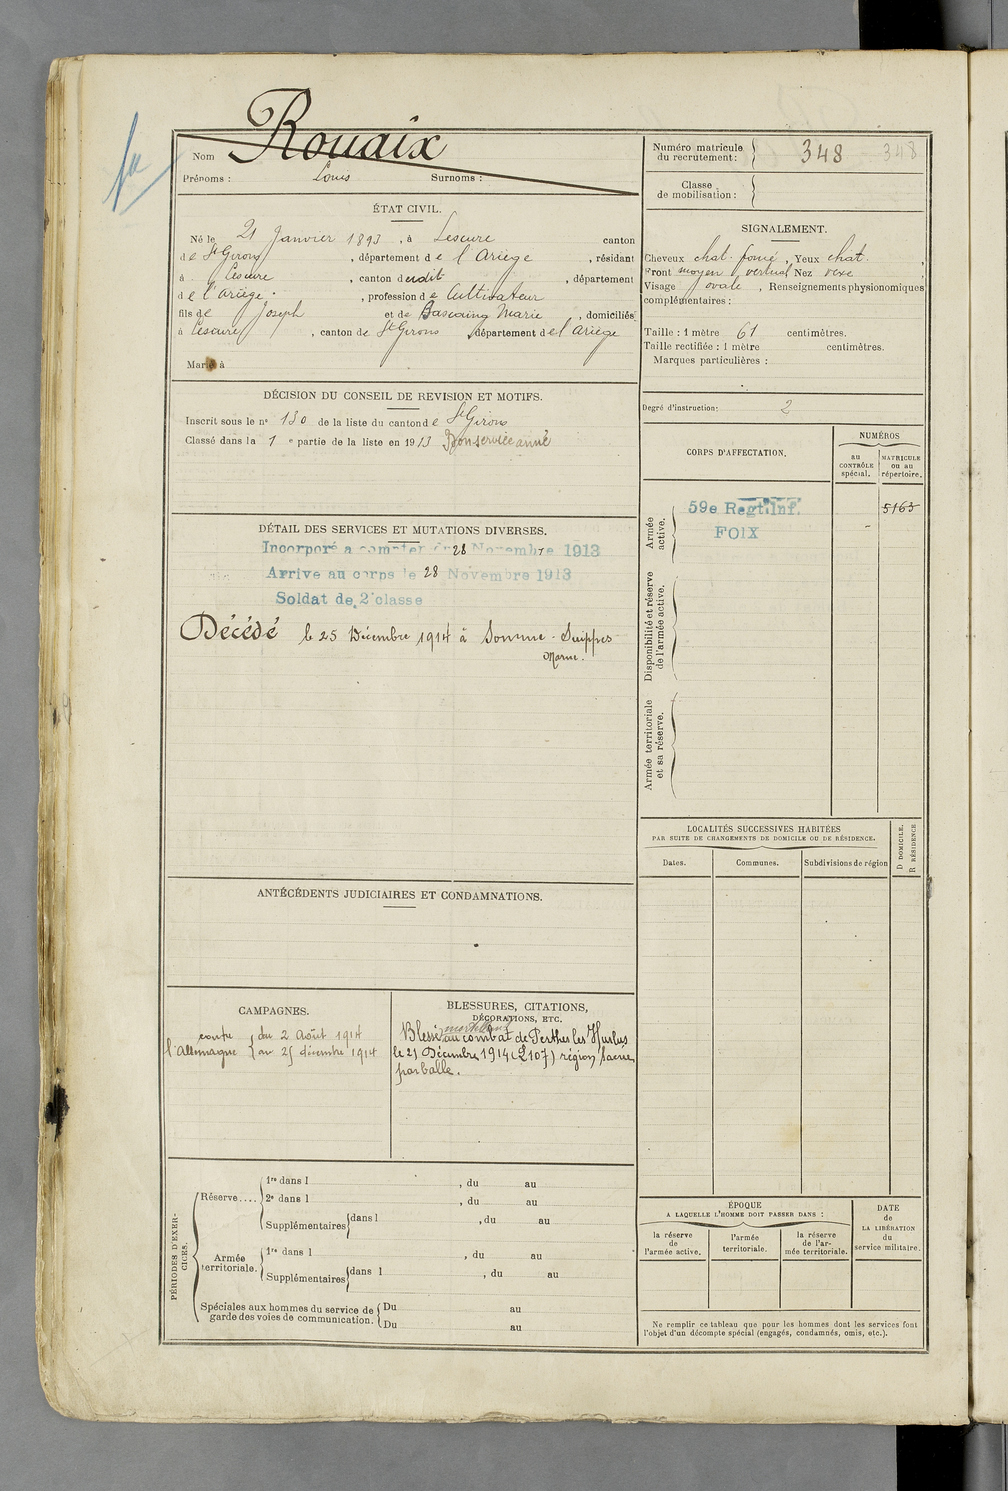 Nom Rouaix
Prénoms : Louis Surnoms :
Numéro matricule du recrutement : 348 348
Classe de mobilisation :
ÉTAT CIVIL.
Né le 21 Janvier 1893, à Lescure canton
de St Girons, département de l'Ariège, résidant
à Lescure, canton dudit, département
de l'ariège, profession de Cultivateur
fils de Joseph et de Bascaing Marie, domiciliés
à Lescure, canton de St Girons, département de l'ariège
Marié à
DÉCISION DU CONSEIL DE REVISION ET MOTIFS.
Inscrit sous le n° 130 de la liste du canton de St Girons
Classé dans la 1 e partie de la liste en 1913 Bon service armé
DÉTAIL DES SERVICES ET MUTATIONS DIVERSES.
Incorporé a compter du 28 Novembre 1913
Arrive au corps le 28 Novembre 1913
Soldat de 2e classe
Décédé le 25 Décembre 1914 à Somme-Suippes
Marne.
ANTÉCÉDENTS JUDICIAIRES ET CONDAMNATIONS.
CAMPAGNES.
contre l'Allemagne { du 2 Août 1914
au 25 décembre 1914
BLESSURES, CITATIONS,
DÉCORATIONS, ETC.
Blessé mortellement au combat de Perthes les Hurlus
le 21 Décembre 1914 (L107) région sacrée
par balle.
PÉRIODES D'EXERCICES.
Réserve.... 1re dans l , du au
2e dans l , du au
Supplémentaires { dans l , du au
Armée territoriale. 1re dans l , du au
Supplémentaires { dans l , du au
Spéciales aux hommes du service de garde des voies de communication. { Du au
Du au
SIGNALEMENT.
Cheveux chat. foncé, Yeux chat.,
Front moyen vertical Nez vexe,
Visage ovale, Renseignements physionomiques
complémentaires :
Taille : 1 mètre 61 centimètres.
Taille rectifiée : 1 mètre centimètres.
Marques particulières :
Degré d'instruction : 2
CORPS D'AFFECTATION.
NUMÉROS
au CONTRÔLE spécial.
MATRICULE ou au répertoire.
Armée active.
59e Regt. Inf.
FOIX
5163
Disponibilité et réserve de l'armée active.
Armée territoriale et sa réserve.
LOCALITÉS SUCCESSIVES HABITÉES
PAR SUITE DE CHANGEMENTS DE DOMICILE OU DE RÉSIDENCE.
D DOMICILE.
R RÉSIDENCE
Dates. Communes. Subdivisions de région
ÉPOQUE
A LAQUELLE L'HOMME DOIT PASSER DANS :
la réserve de l'armée active.
l'armée territoriale.
la réserve de l'armée territoriale.
DATE de LA LIBÉRATION du service militaire.
Ne remplir ce tableau que pour les hommes dont les services font
l'objet d'un décompte spécial (engagés, condamnés, omis, etc.).